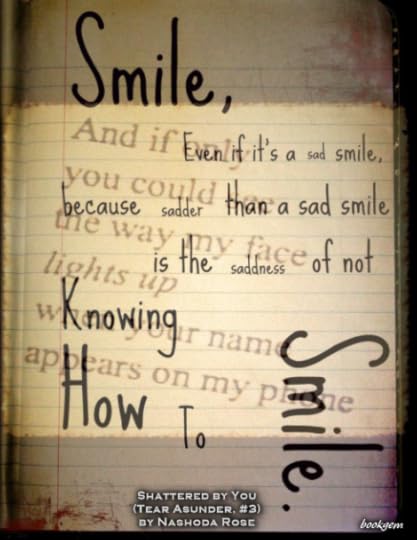 Smile,
Even if it's a sad smile,
because sadder than a sad smile
is the saddness of not
Knowing
How To
Smile.
And if only
you could see
the way my face
lights up
when your name
appears on my phone
Shattered by You
(Tear Asunder, #3)
by Nashoda Rose
bookgem